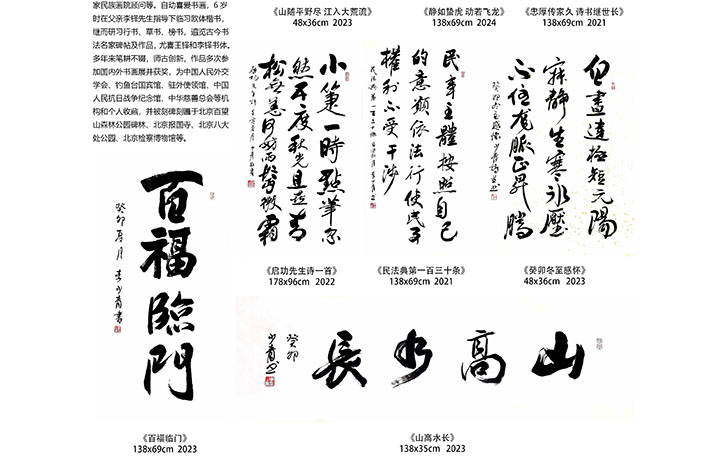 家民族画院顾问等。自幼喜爱书画，6 岁
时在父亲李铎先生指导下临习欧体楷书，
继而研习行书、草书、榜书，遍览古今书
法名家碑帖及作品，尤喜王铎和李铎书体。
多年来笔耕不辍，师古创新，作品多次参
加国内外书画展并获奖，为中国人民外交
学会、钓鱼台国宾馆、驻外使领馆、中国
人民抗日战争纪念馆、中华慈善总会等机
构和个人收藏，并被刻碑刻匾于北京百望
山森林公园碑林、北京报国寺、北京八大
处公园、北京检察博物馆等。
《山随平野尽 江入大荒流》
48x36cm 2023
《静如蛰虎 动若飞龙》
138x69cm 2024
《忠厚传家久 诗书继世长》
138x69cm 2021
民事主體按照自己
的意願依法行使民事
權利不受干涉
民法典第一百三十條
晝達極短元陽
靜生寒冰壓
正昇騰
《启功先生诗一首》
178x96cm 2022
《民法典第一百三十条》
138x69cm 2021
《癸卯冬至感怀》
48x36cm 2023
百福臨門
癸卯夏月 李少青書
《百福临门》
138x69cm 2023
山高水長
癸卯
少青書
《山高水长》
138x35cm 2023